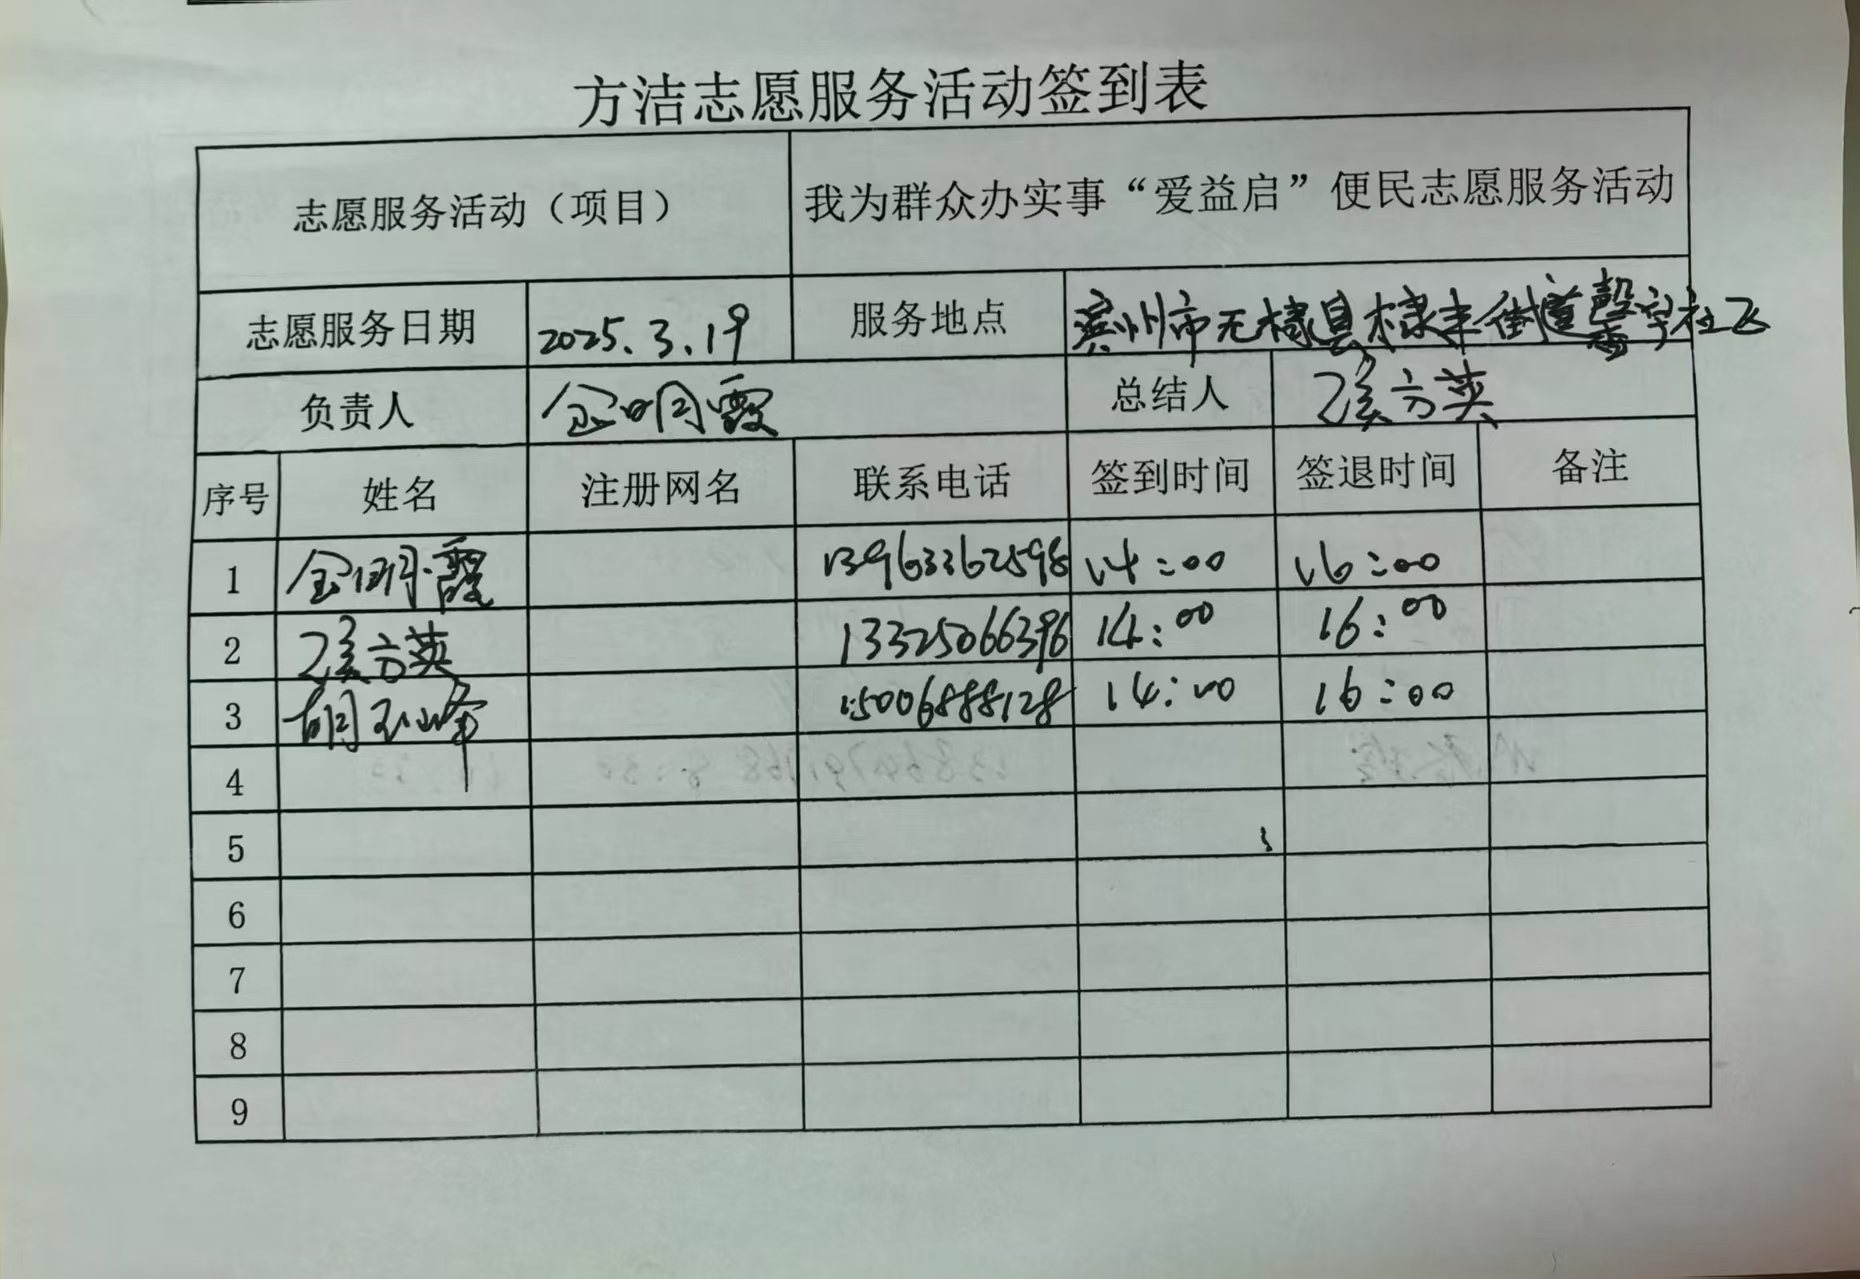 方洁志愿服务活动签到表
志愿服务活动（项目） 我为群众办实事“爱益启”便民志愿服务活动
志愿服务日期 2025.3.19 服务地点 滨州市无棣县棣丰街道馨宇社区
负责人 金明霞 总结人 孟方英
序号 姓名 注册网名 联系电话 签到时间 签退时间 备注
1 金明霞 13963362598 14:00 16:00
2 方英 13325066396 14:00 16:00
3 胡玉峰 15006888128 14:00 16:00
4
5
6
7
8
9